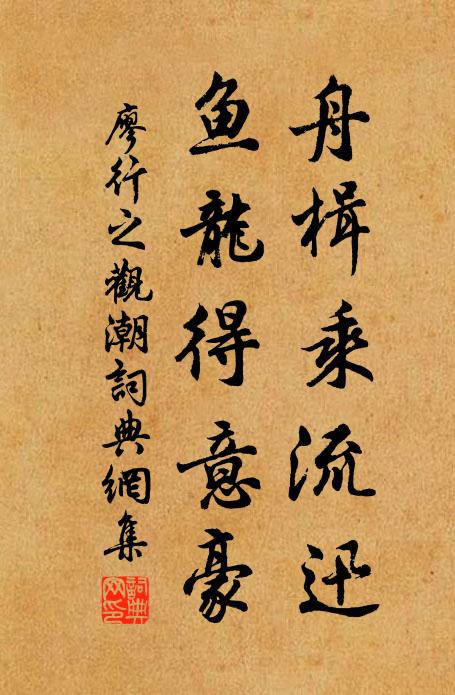 舟楫乘流迅
鱼龍得意豪
廖行之觀潮詞典網集
詞典網印